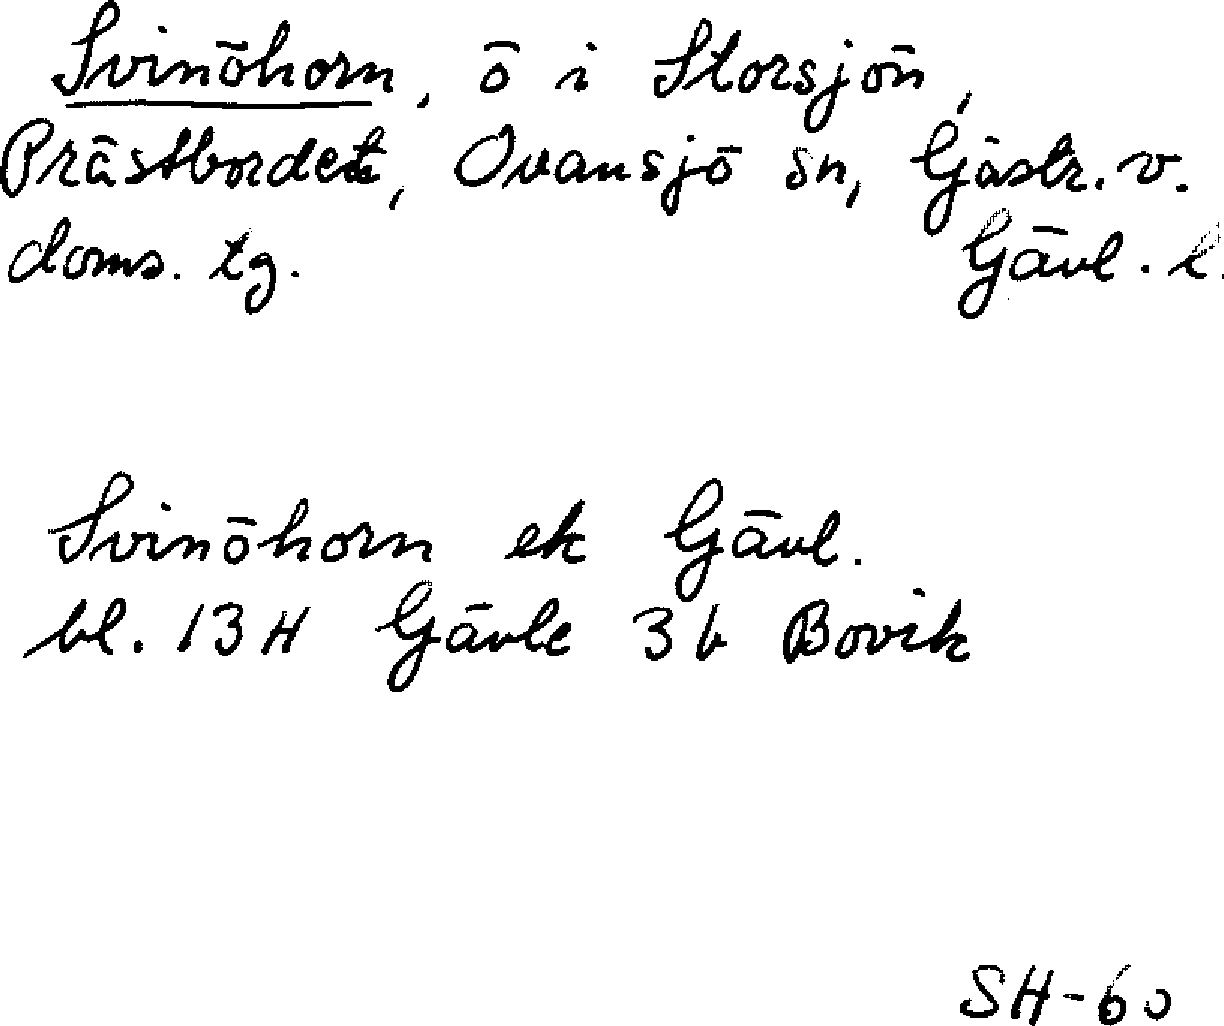 Svinöhorn, ö i Storsjön,
Prästbordet, Ovansjö sn, Gästr. v.
doms. tg. Gävl. l.
Svinöhorn ek Gävl.
bl. 13H Gävle 3b Bovik
SH-60